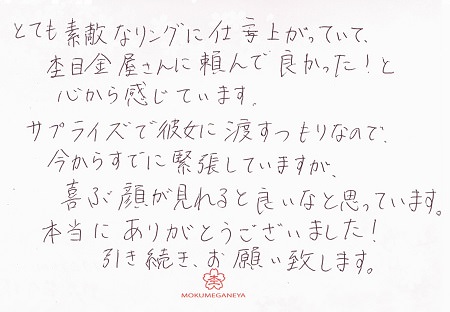 とても素敵なリングに仕上がっていて、
杢目金屋さんに頼んで良かった!と
心から感じています。
サプライズで彼女に渡すつもりなので、
今からすでに緊張していますが、
喜ぶ顔が見れると良いなと思っています。
本当にありがとうございました!
引き続き、お願い致します。
MOKUMEGANEYA